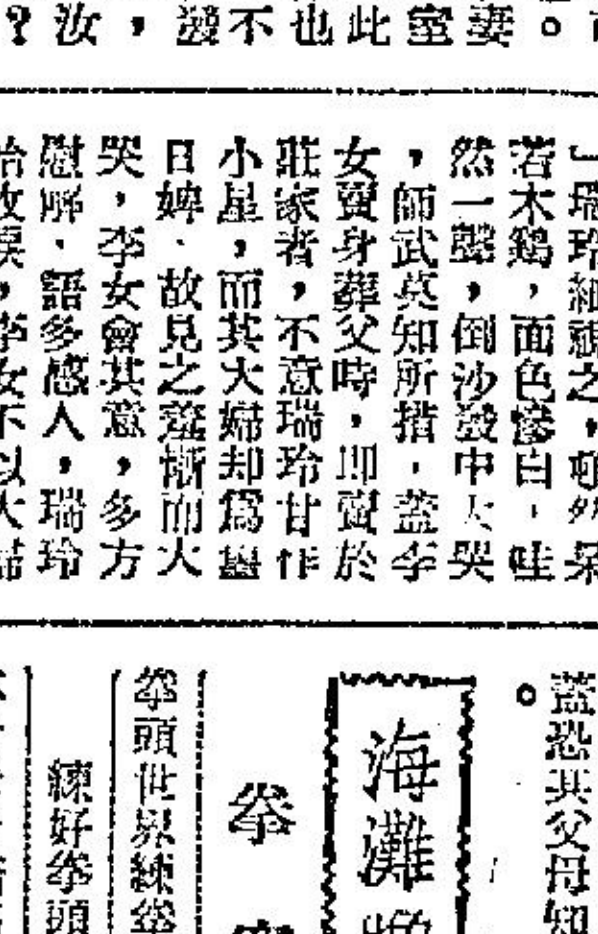 妻
室
此
也
不
。
，
汝
？
」瑞玲細視之，頓然呆
若木鷄，面色慘白，哇
然一聲，倒沙發中大哭
，師武莫知所措，蓋李
女賣身葬父時，即賣於
莊家者，不意瑞玲甘作
小星，而其大婦却爲
日婢，故見之羞慚而大
哭，李女會其意，多方
慰解，語多感人，瑞玲
李女不以大
蓋恐其父母知
。
海灘
拳
拳頭世界練拳
練好拳頭